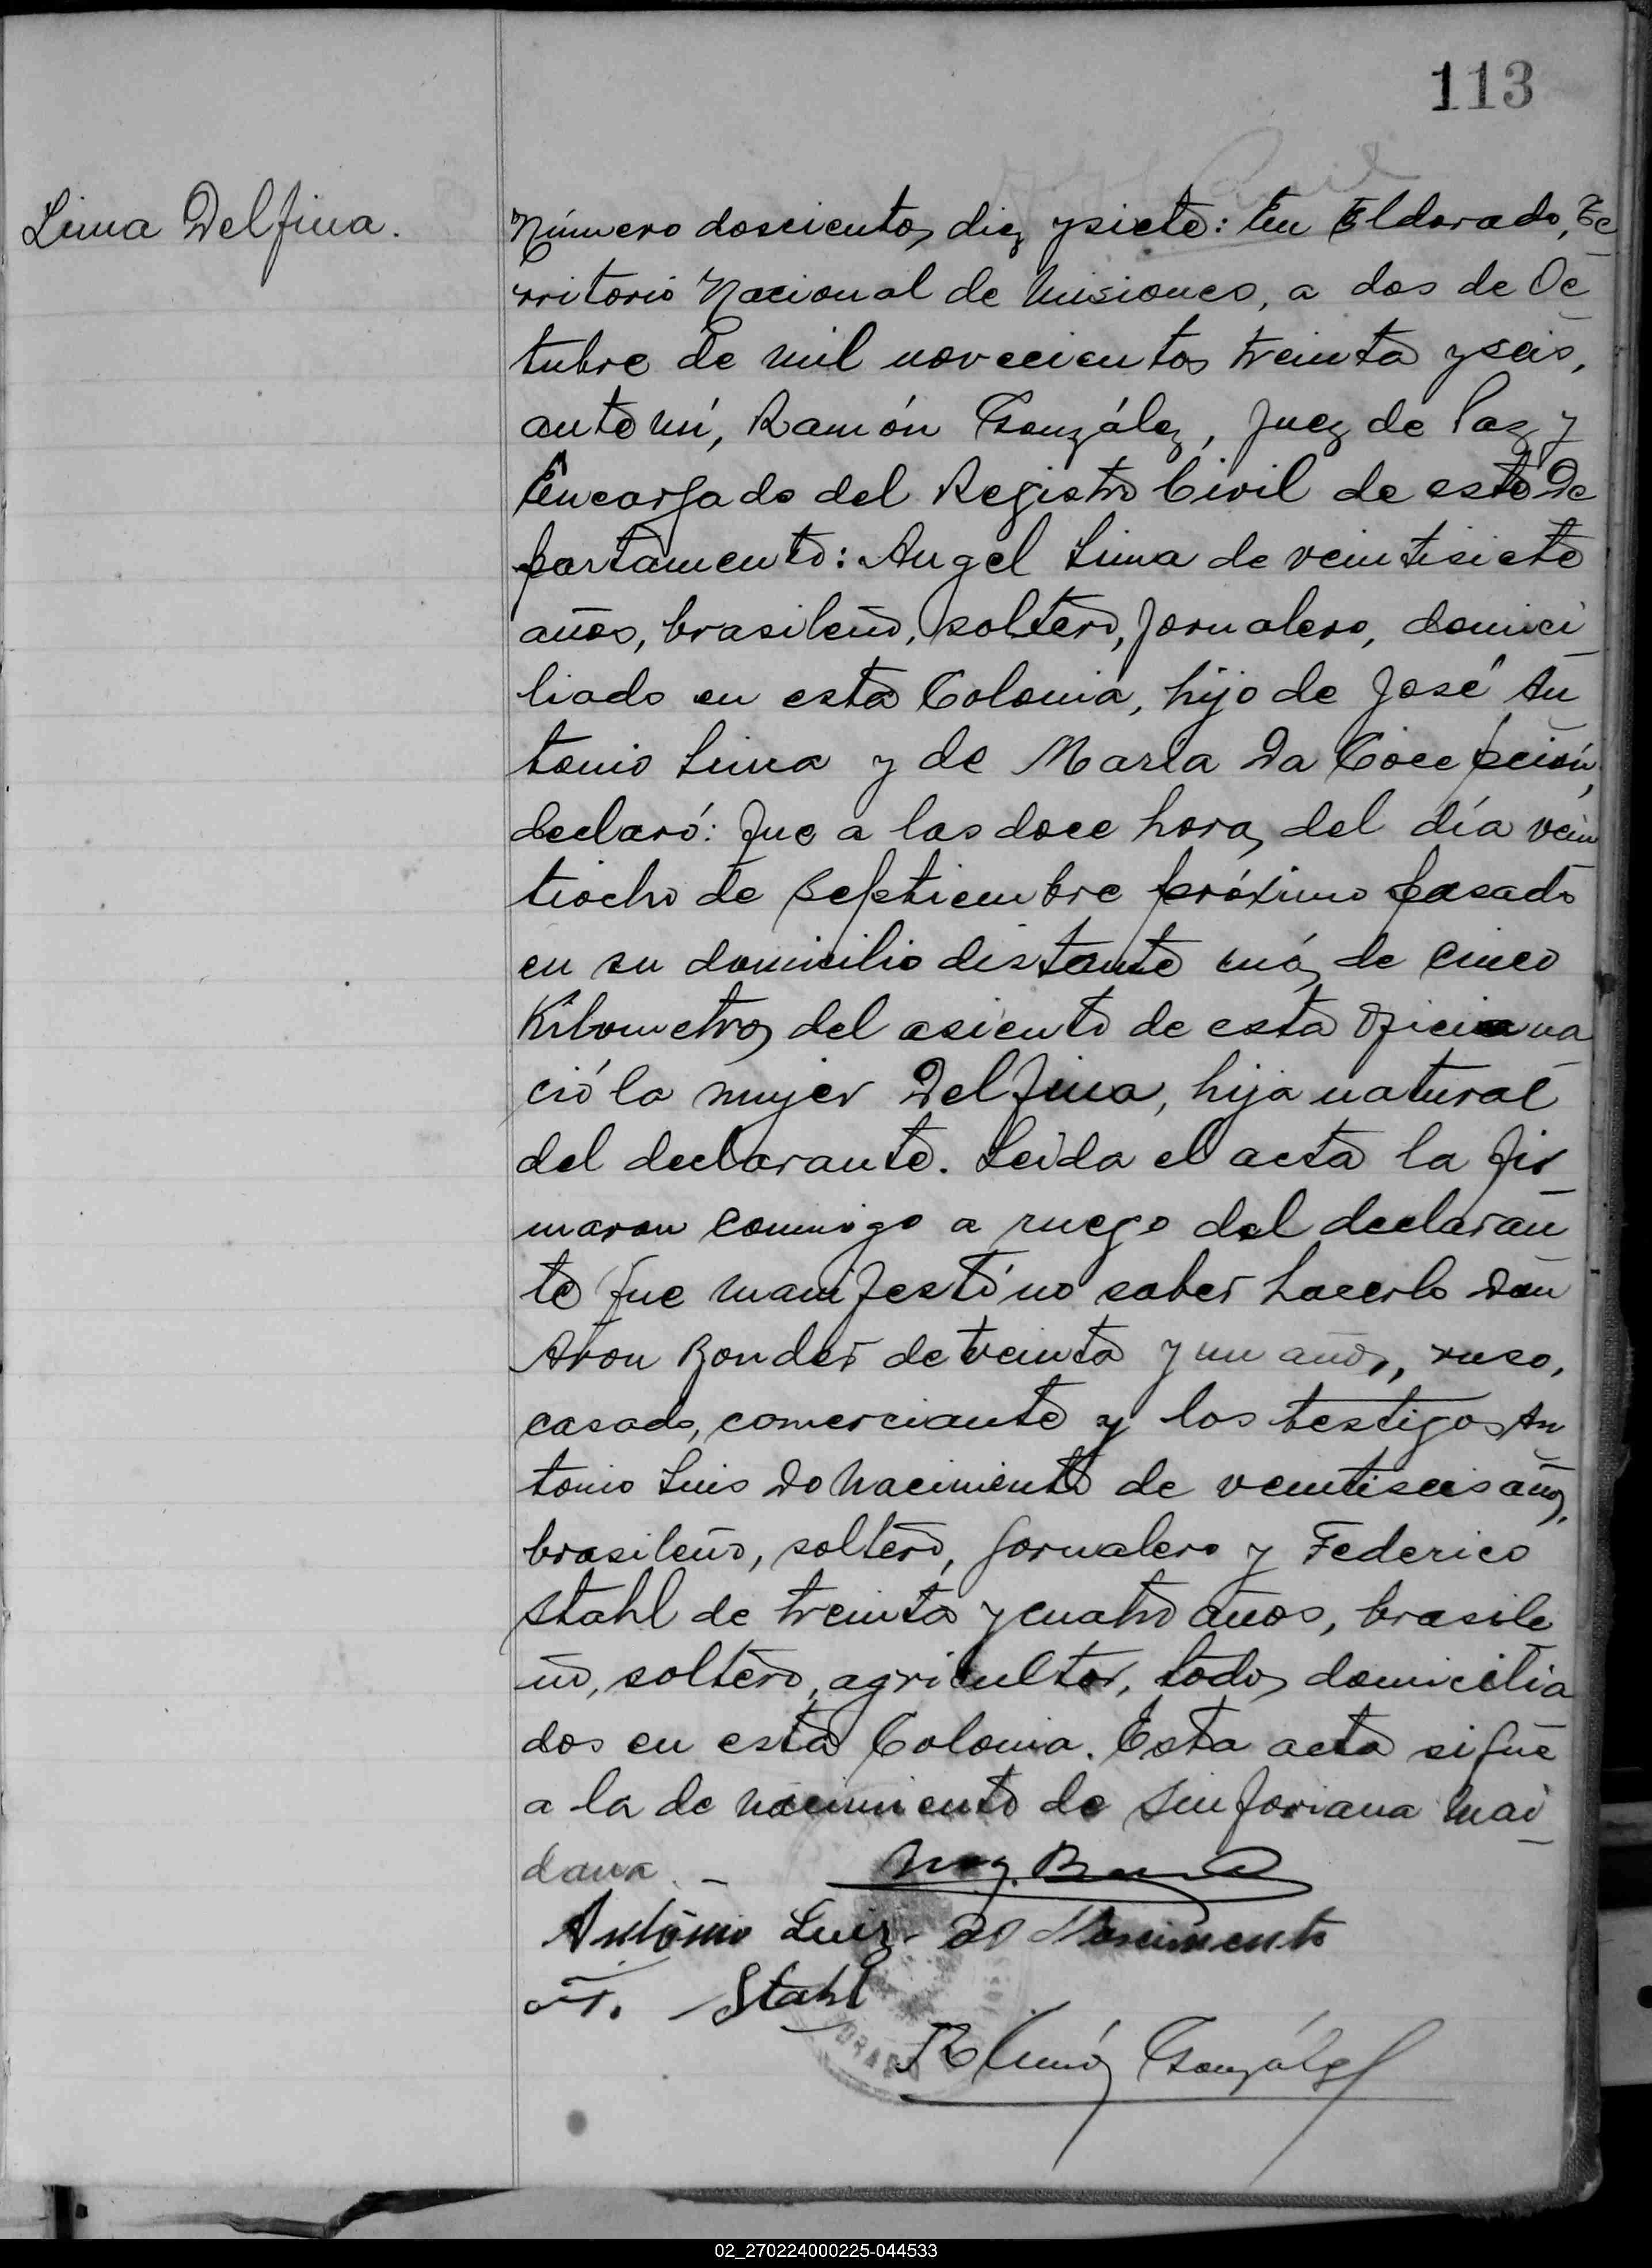 113
Lima Delfina.
Número doscientos diez y siete: En Eldorado, Te
rritorio Nacional de Misiones, a dos de Oc
tubre de mil novecientos treinta y seis,
ante mí, Ramón González, Juez de Paz y
Encargado del Registro Civil de este De
partamento: Angel Lima de veintisiete
años, brasileño, soltero, jornalero, domici
liado en esta Colonia, hijo de José An
tonio Lima y de María Da Cocepción,
declaró: Que a las doce horas del día vein
tiocho de Septiembre próximo pasado
en su domicilio distante más de cinco
Kilometros del asiento de esta Oficina na
ció la mujer Delfina, hija natural
del declarante. Leída el acta la fir
maron conmigo a ruego del declaran
te que manifestó no saber hacerlo Don
Aron Bonder de treinta y un años, ruso,
casado, comerciante y los testigos An
tonio Luis Do Nacimiento de veintiseis años,
brasileño, soltero, jornalero y Federico
Stahl de treinta y cuatro años, brasile
ño, soltero, agricultor, todos domicilia
dos en esta Colonia. Esta acta sigue
a la de nacimiento de Sinforiana Mai
dana. -
Antônio Luiz do Nascimento
Stahl
Ramón González
02_270224000225-044533